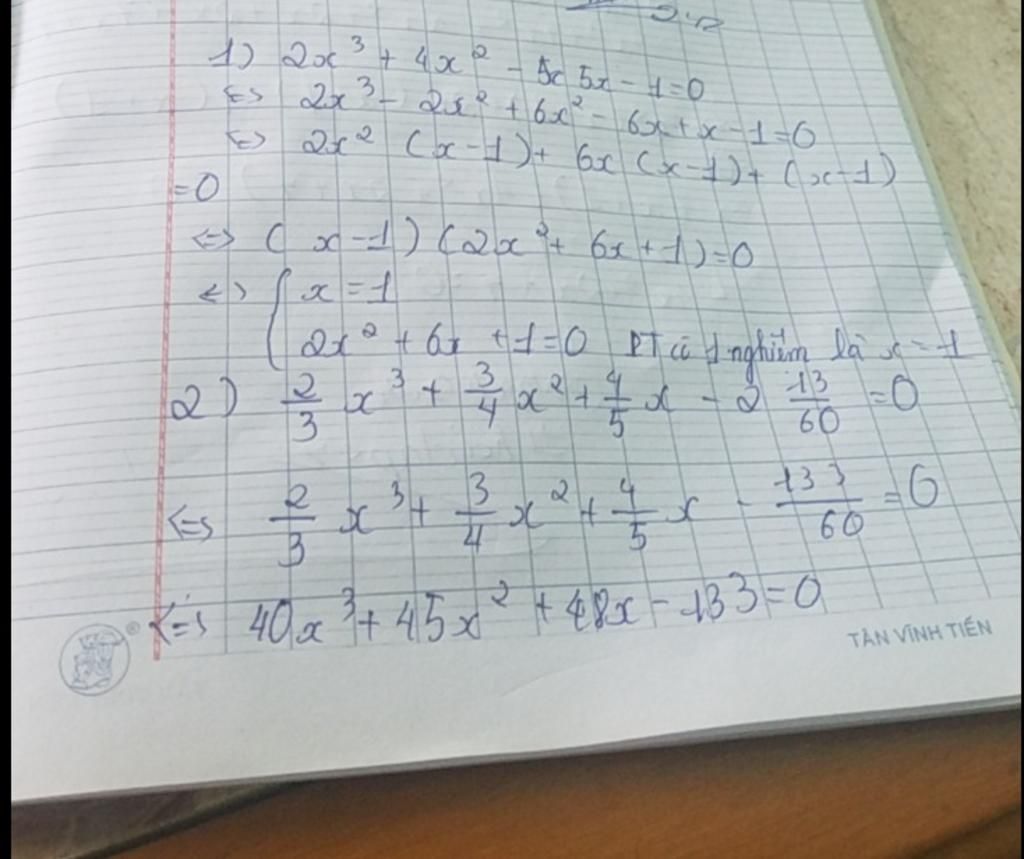 1) 2x³ + 4x² - 5x 5x - 1 = 0
<=> 2x³ - 2x² + 6x² - 6x + x - 1 = 0
<=> 2x² (x - 1) + 6x (x - 1) + (x - 1)
= 0
<=> (x - 1) (2x² + 6x + 1) = 0
<=> { x = 1
2x² + 6x + 1 = 0 PT có 1 nghiệm là x = 1
2) 2/3 x³ + 3/4 x² + 4/5 x - 2 13/60 = 0
<=> 2/3 x³ + 3/4 x² + 4/5 x - 133/60 = 0
<=> 40x³ + 45x² + 48x - 133 = 0
TÂN VĨNH TIẾN